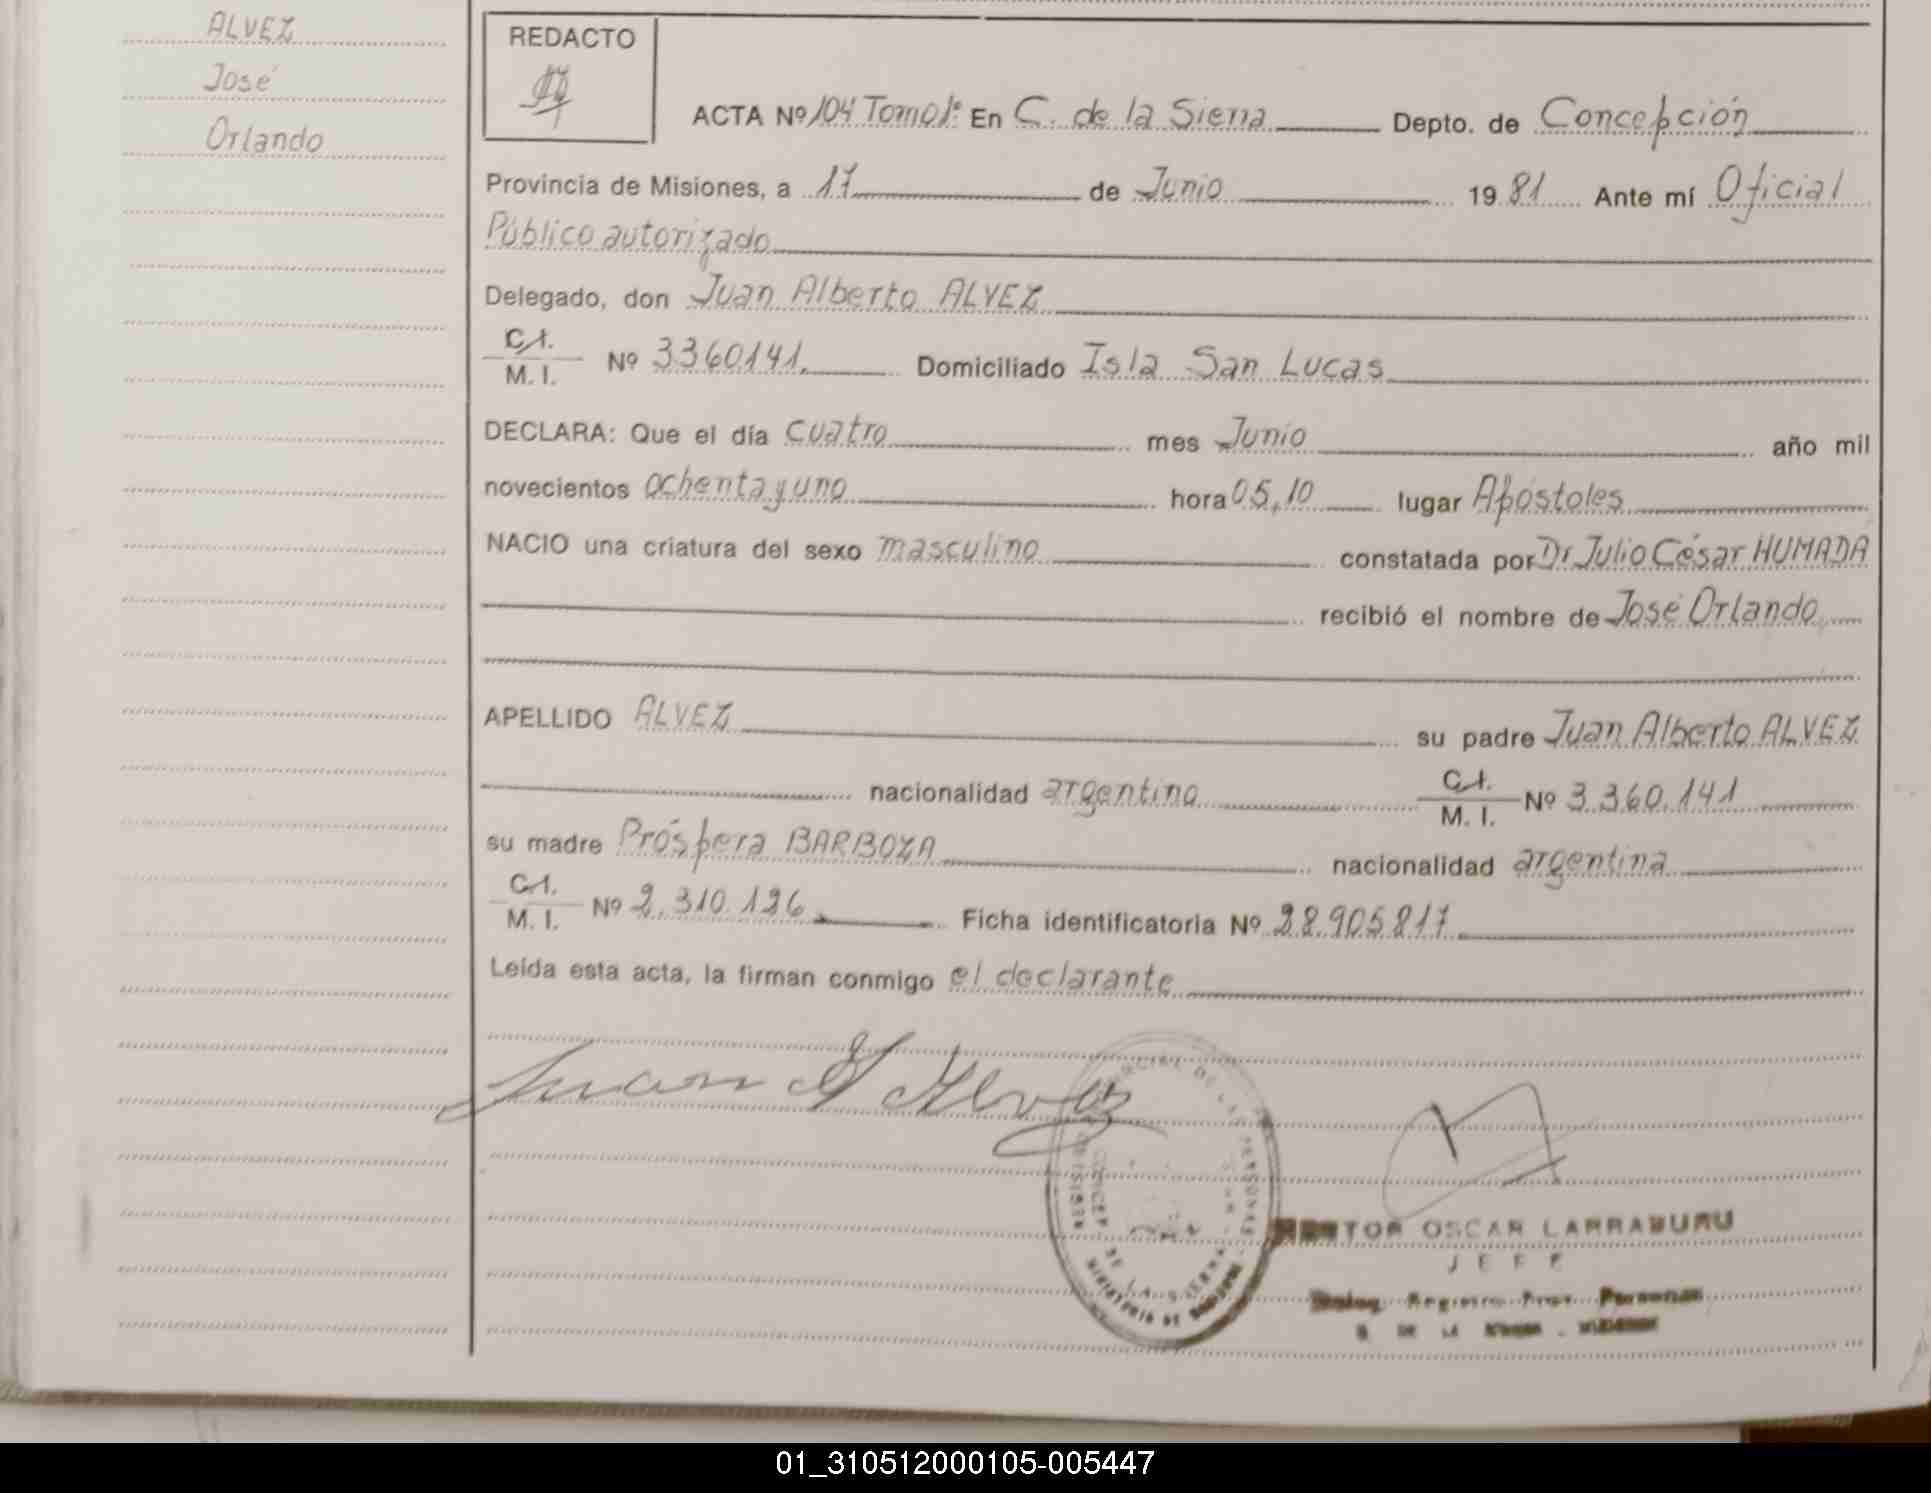 ALVEZ
José
Orlando
REDACTO
ACTA Nº 104 Tomo 1º En C. de la Sierra Depto. de Concepción
Provincia de Misiones, a 17 de Junio 1981 Ante mí Oficial
Público autorizado
Delegado, don Juan Alberto ALVEZ
C.I.
M. I. Nº 3360141. Domiciliado Isla San Lucas
DECLARA: Que el día cuatro mes Junio año mil
novecientos ochenta y uno hora 05,10 lugar Apóstoles
NACIO una criatura del sexo masculino constatada por Dr Julio César HUMADA
recibió el nombre de José Orlando
APELLIDO ALVEZ su padre Juan Alberto ALVEZ
nacionalidad argentina C.I.
M. I. Nº 3.360.141
su madre Próspera BARBOZA nacionalidad argentina
C.I.
M. I. Nº 2.310.126 Ficha identificatoria Nº 28.905817
Leída esta acta, la firman conmigo el declarante
Juan A Alvez
OSCAR LARRABURU
JEFE
Registro Prov. Personas
DE LA
01_310512000105-005447